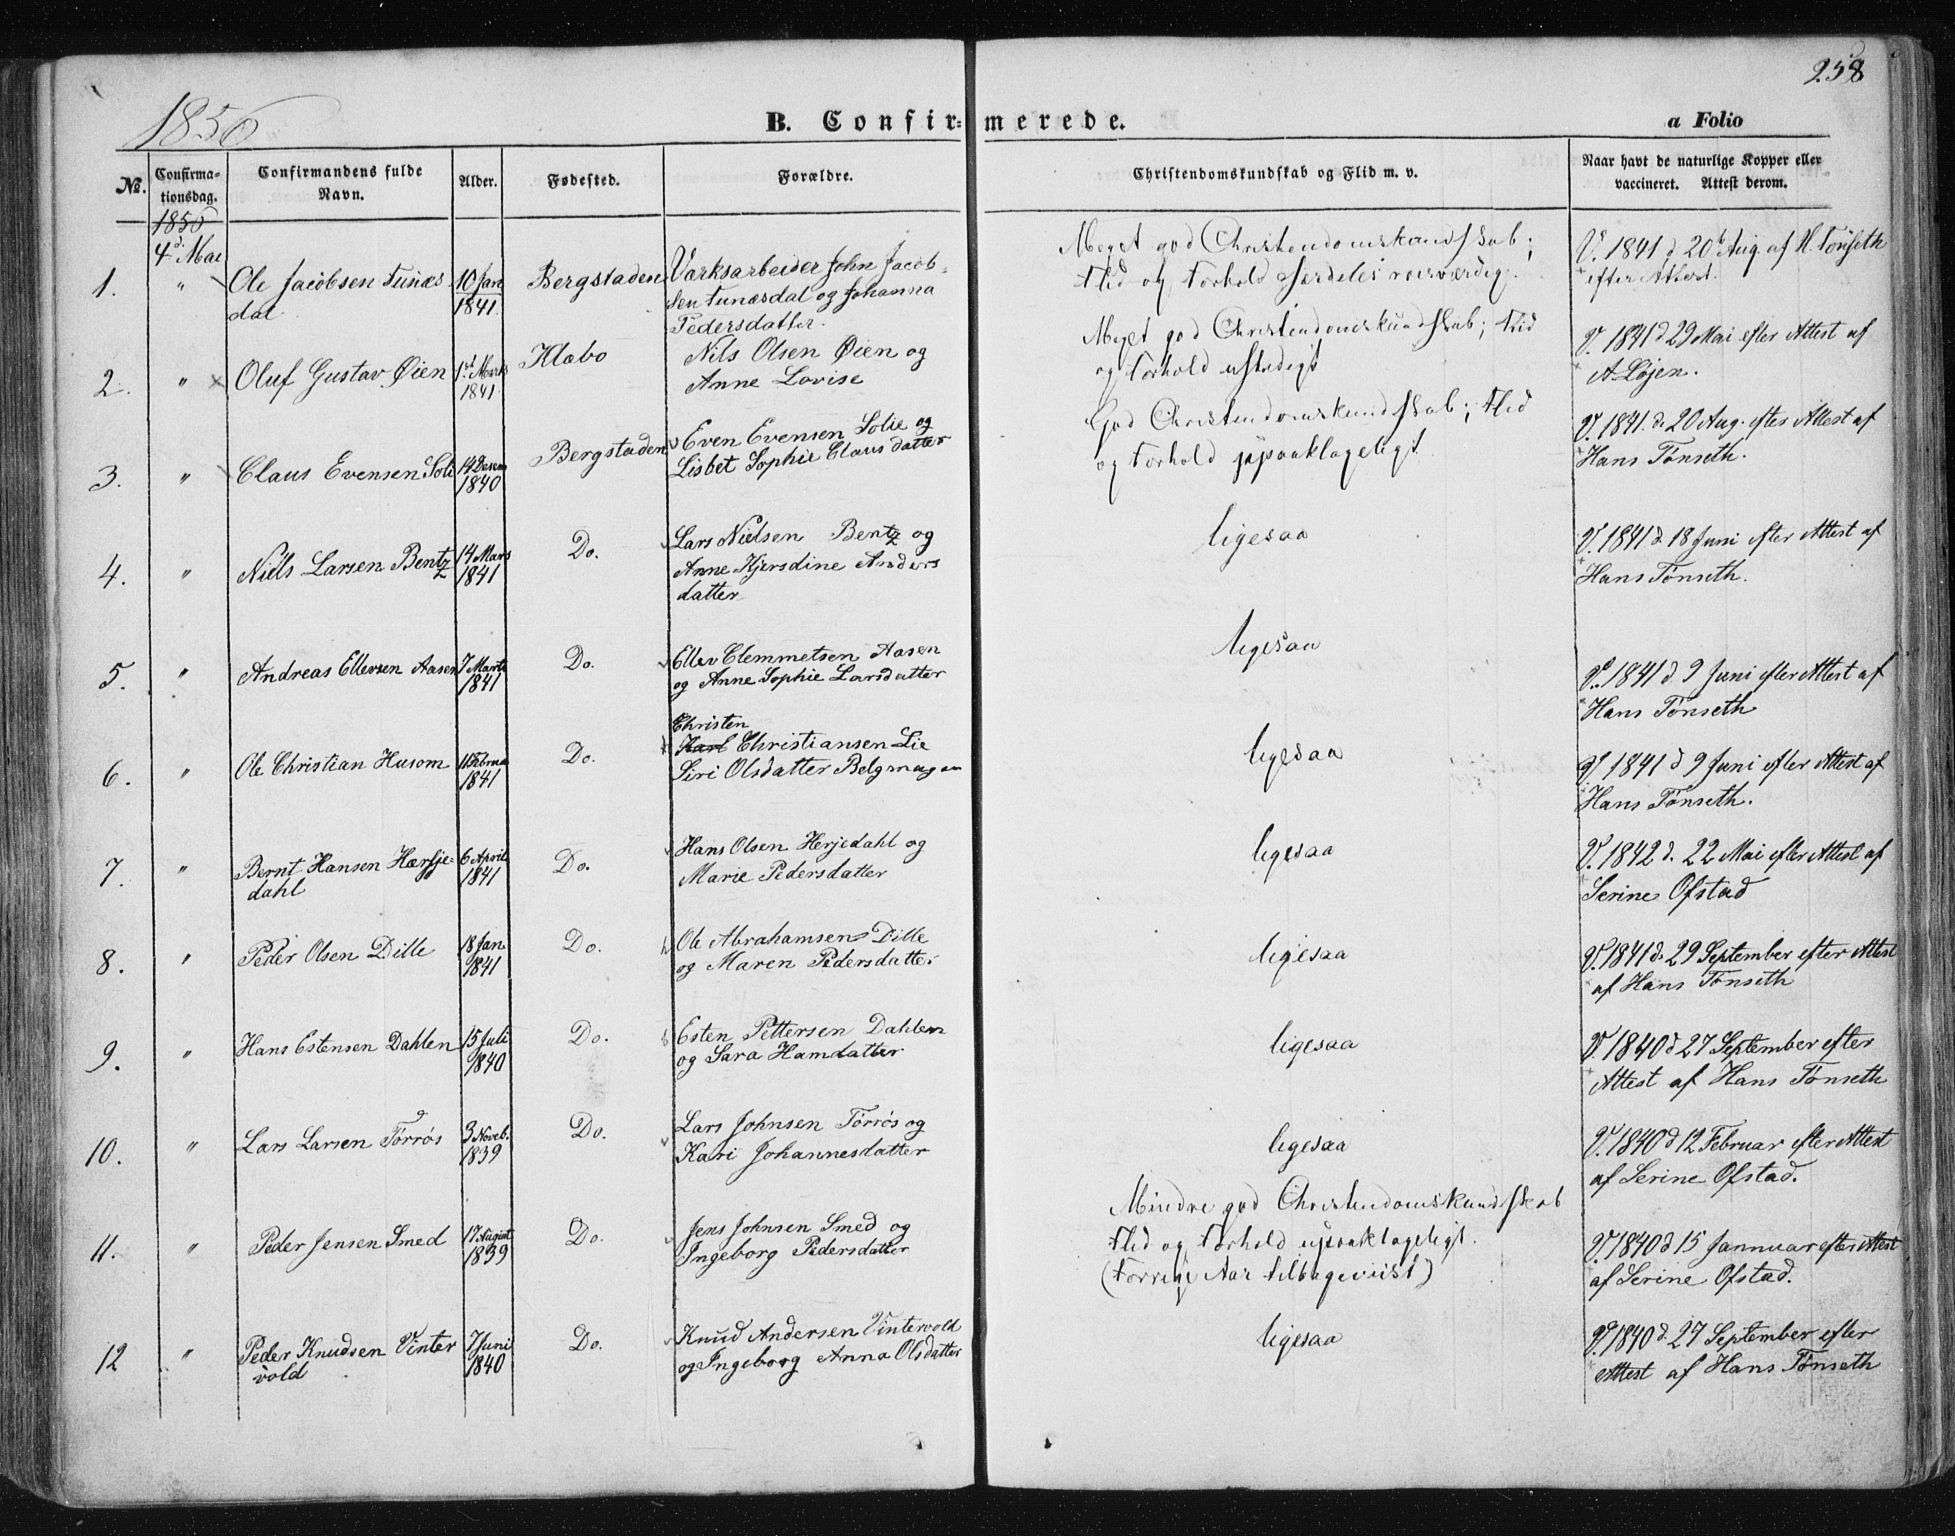 258
1856
B. Confir=merede.
a Folio
No.
Confirma-
tionsdag.
Confirmandens fulde
Navn.
Alder.
Fødested.
Forældre.
Christendomskundskab og Flid m. v.
Naar havt de naturlige Kopper eller
vaccineret. Attest derom.
1856
4d. Mai
1. " Ole Jacobsen Funæs
dal
10 Jan
1841
Bergstaden
Værksarbeider John Jacob-
sen Funæsdal og Johanna
Pedersdatter.
Meget god Christendomskundskab;
Flid og Forhold særdeles roesværdig.
V. 1841 d 20 Aug. af H. Tønseth
efter Attest.
2. " Oluf Gustav Øien
1841
Klæbo
Nils Olsen Øien og
Anne Lovise
Meget god Christendomskundskab; Flid
og Forhold ustadigt
V. 1841 d 29 Mai efter Attest af
A Løjen.
3. " Claus Evensen Soli
14 Decem
1840
Bergstaden
Even Evensen Solie og
Lisbet Sophie Claus datter
God Christendomskundskab; Flid
og Forhold upaaklageligt
V. 1841. d. 20 Aug. efter Attest af
Hans Tønseth.
4. " Niels Larsen Bentz
14 Mars
1841
Do.
Lars Nielsen Bentz og
Anne Kjersdine Anders
datter
ligesaa
V. 1841 d. 18 Juni efter Attest af
Hans Tønseth.
5. " Andreas Ellevsen Aasen
7 Marts
1841
Do.
Ellev Clemmetsen Aasen
og Anne Sophie Larsdatter
ligesaa
V. 1841 d. 9 Juni efter Attest af
Hans Tønseth
6. " Ole Christian Husom
1841
Do.
Christen
Karl Christiansen Lie
Siri Olsdatter
ligesaa
V 1841 d 9 Juni efter Attest af
Hans Tønseth.
7. " Bernt Hansen Hærje-
dahl
6 April
1841
Do.
Hans Olsen Herjedahl og
Marie Pedersdatter
ligesaa
V. 1842 d. 22 Mai efter Attest af
Serine Ofstad
8. " Peder Olsen Dille
18 Jan
1841
Do.
Ole Abrahamsen Dille
og Maren Pedersdatter
ligesaa
V. 1841 d. 29 September efter Attest
af Hans Tønseth
9. " Hans Estensen Dahlen
15 Juli
1840
Do.
Esten Pettersen Dahlen
og Sara Hansdatter
ligesaa
V. 1840 d 27 September efter
Attest af Hans Tønseth
10. " Lars Larsen Törrös
3 Noveb.
1839
Do.
Lars Johnsen Törrös og
Kari Johannesdatter
ligesaa
V. 1840 d 12 Februar efter Attest
af Serine Ofstad.
11. " Peder Jensen Smed
17 August
1839
Do.
Jens Johnsen Smed og
Ingeborg Pedersdatter
Mindre god Christendomskundskab
Flid og Forhold upaaklageligt.
(Forrige Aar tilbageviist)
V. 1840 d 15 Jannuar efter Attest
af Serine Ofstad.
12 " Peder Knudsen Vinter
vold
7 Juni
1840
Do.
Knud Andersen Vintervold
og Ingeborg Anna Olsdatter
ligesaa
V. 1840 d. 27 September efter
Attest af Hans Tønseth